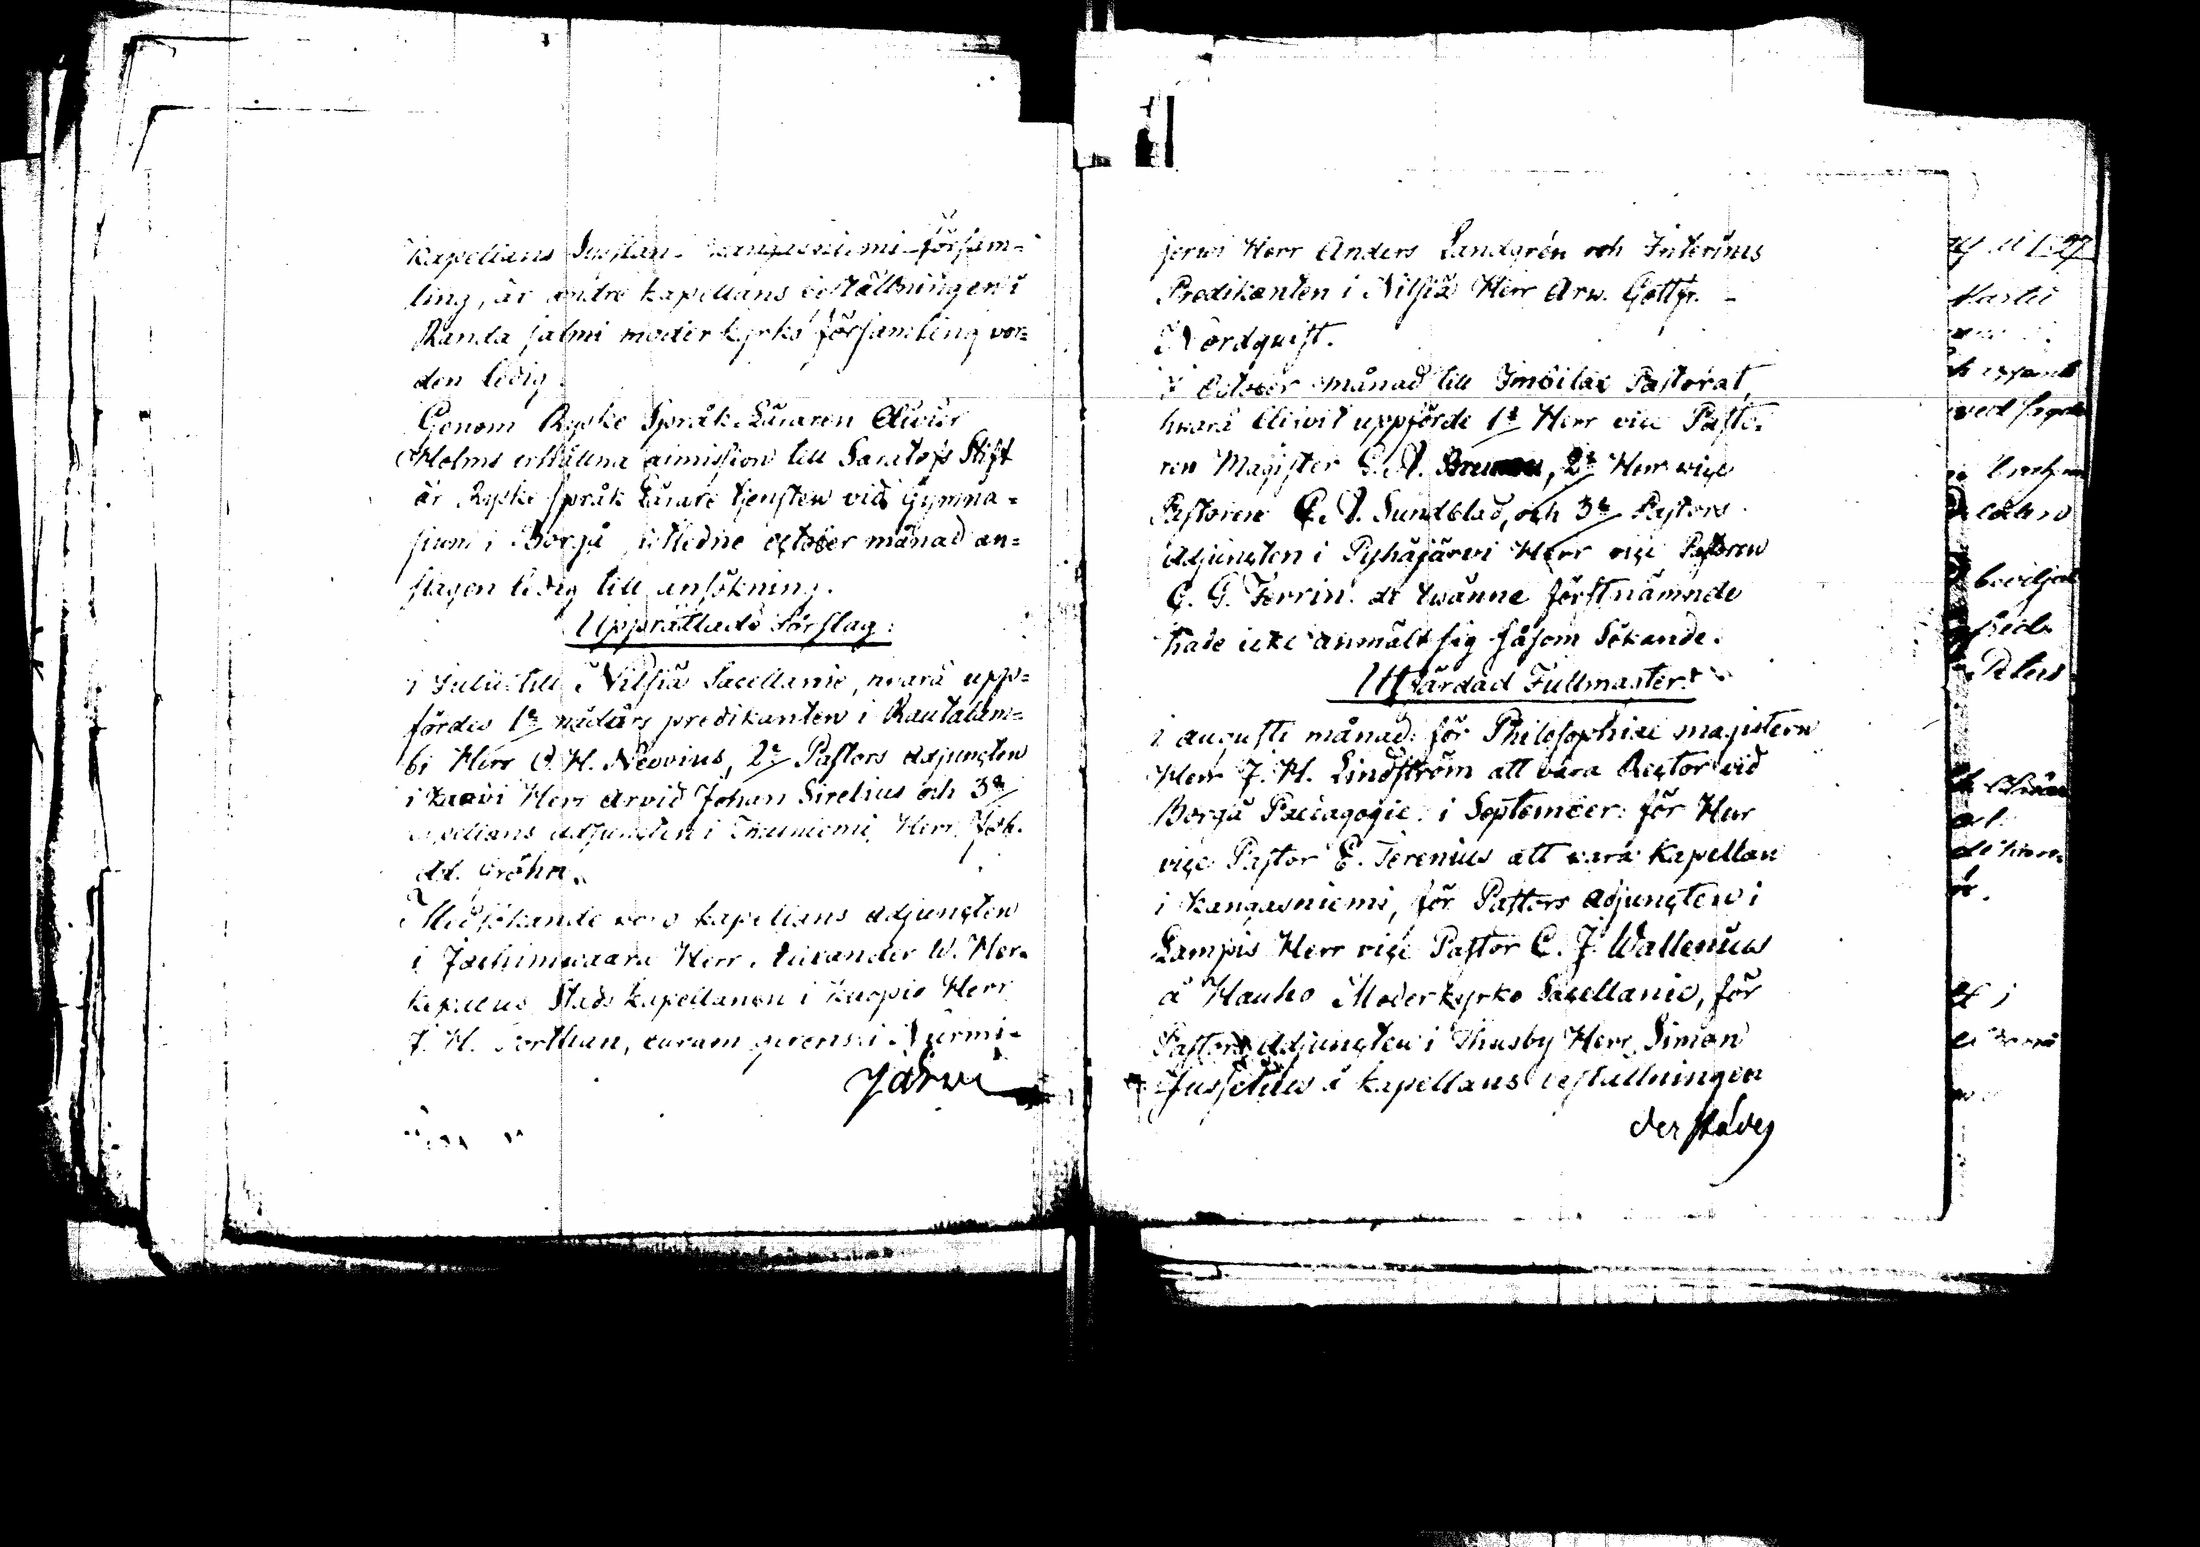 kapellans Sysslan i Kangasniemi försam=
ling, är andre kapellans beställningen i
Randasalmi moderkyrko församling vor=
den ledig.
Genom Ryske Språk Läraren Olivier
Holms erhållna dimission till Saratofs Stift
är Ryske språk Lärare tjensten vid Gymna=
sium i Borgå sistledne october månad an=
slagen ledig till ansökning.
Upprättade Förslag:
i Julii till Nilsiä Sacellanie, hvarå upp=
fördes 1º nådårs predikanten i Rautalam=
bi Herr C. H. Neovius, 2º Pastors adjuncten
i Kaavi Herr Arvid Johan Sirelius och 3º
kapellans adjuncten i Herr Joh.
Ad. Gröhn.
Medsökande voro kapellans adjuncten
i Herr Alexander W. Her=
kepaeus Stads kapellanen i Kuopio Herr
J. H. Porthan, curam gerens i Nurmi=
järvi
jervi Herr Anders Landgrén och Interims
Predikanten i Nilsiä Herr Arw. Gottfr.
Nordqvist.
i October månad till Imbilax Pastorat,
hvarå blivit uppförde 1º Herr vice Pasto=
ren Magister G. A. 2º Herr vice
Pastoren C. J. Sundblad, och 3º Pastors
adjuncten i Pyhäjärvi Herr vice Pastoren
C. G. Ferrin. de twänne förstnämnde
hade icke anmält sig såsom Sökande.
Utfärdad Fullmagter:
i augusti månad: för Philosophiae magistern
Herr J. H. Lindström att vara Rector vid
Borgå Paedagogie: i September: för Herr
vice Pastor E. Terenius att vara kapellan
i Kangasniemi, för Pastors adjuncten i
Lampis Herr vice Pastor C. J. Wallenius
å Hauho Moderkyrko Sacellanie, för
Pastors adjuncten i Thusby Herr Simon
Jusselius å kapellans beställningen
derstädes